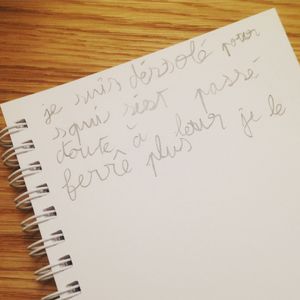 je suis dérsolé pour
squi s'est passé
toute à leur je le
ferrê plus